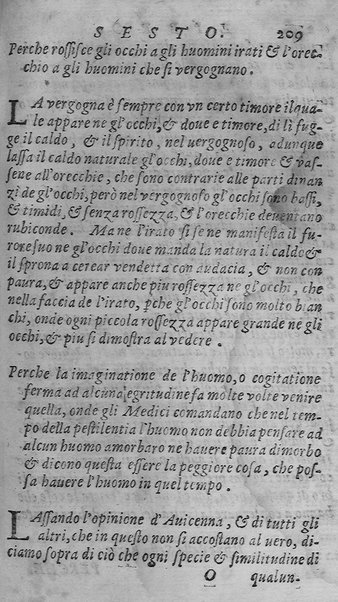 SESTO. 209
Perche rossisce gli occhi a gli huomini irati & l'orec
chio a gli huomini che si vergognano.
LA vergogna è sempre con vn certo timore ilqua
le appare ne gl'occhi, & doue e timore, di li fug-
ge il caldo, & il spirito, nel vergognoso, adunque
lassa il caldo naturale gl'occhi, doue e timore & vas-
sene all'orecchie, che sono contrarie alle parti dinan
zi de gl'occhi, però nel vergognoso gl'occhi sono bassi,
& timidi, & senza rossezza, & l'orecchie deuentano
rubiconde. Ma ne l'irato si se ne manifesta il fu-
rore suo ne gl'occhi doue manda la natura il caldo &
il sprona a cercar vendetta con audacia, & non con
paura, & appare anche piu rossezza ne gl'occhi, che
nella faccia de l'irato, pche gl'occhi sono molto bian
chi, onde ogni piccola rossezza appare grande ne gli
occhi, & piu si dimostra al vedere.
Perche la imaginatione de l'huomo, o cogitatione
ferma ad alcuna egritudine fa molte volte venire
quella, onde gli Medici comandano che nel tem-
po della pestilentia l'huomo non debbia pensare ad
alcun huomo amorbaro ne hauere paura dimorbo
& dicono questa essere la peggiore cosa, che pos-
sa hauere l'huomo in quel tempo.
LAssando l'opinione d'Auicenna, & di tutti gli
altri, che in questo non si accostano al uero, di-
ciamo sopra di ciò che ogni specie & similitudine di
O qualun-